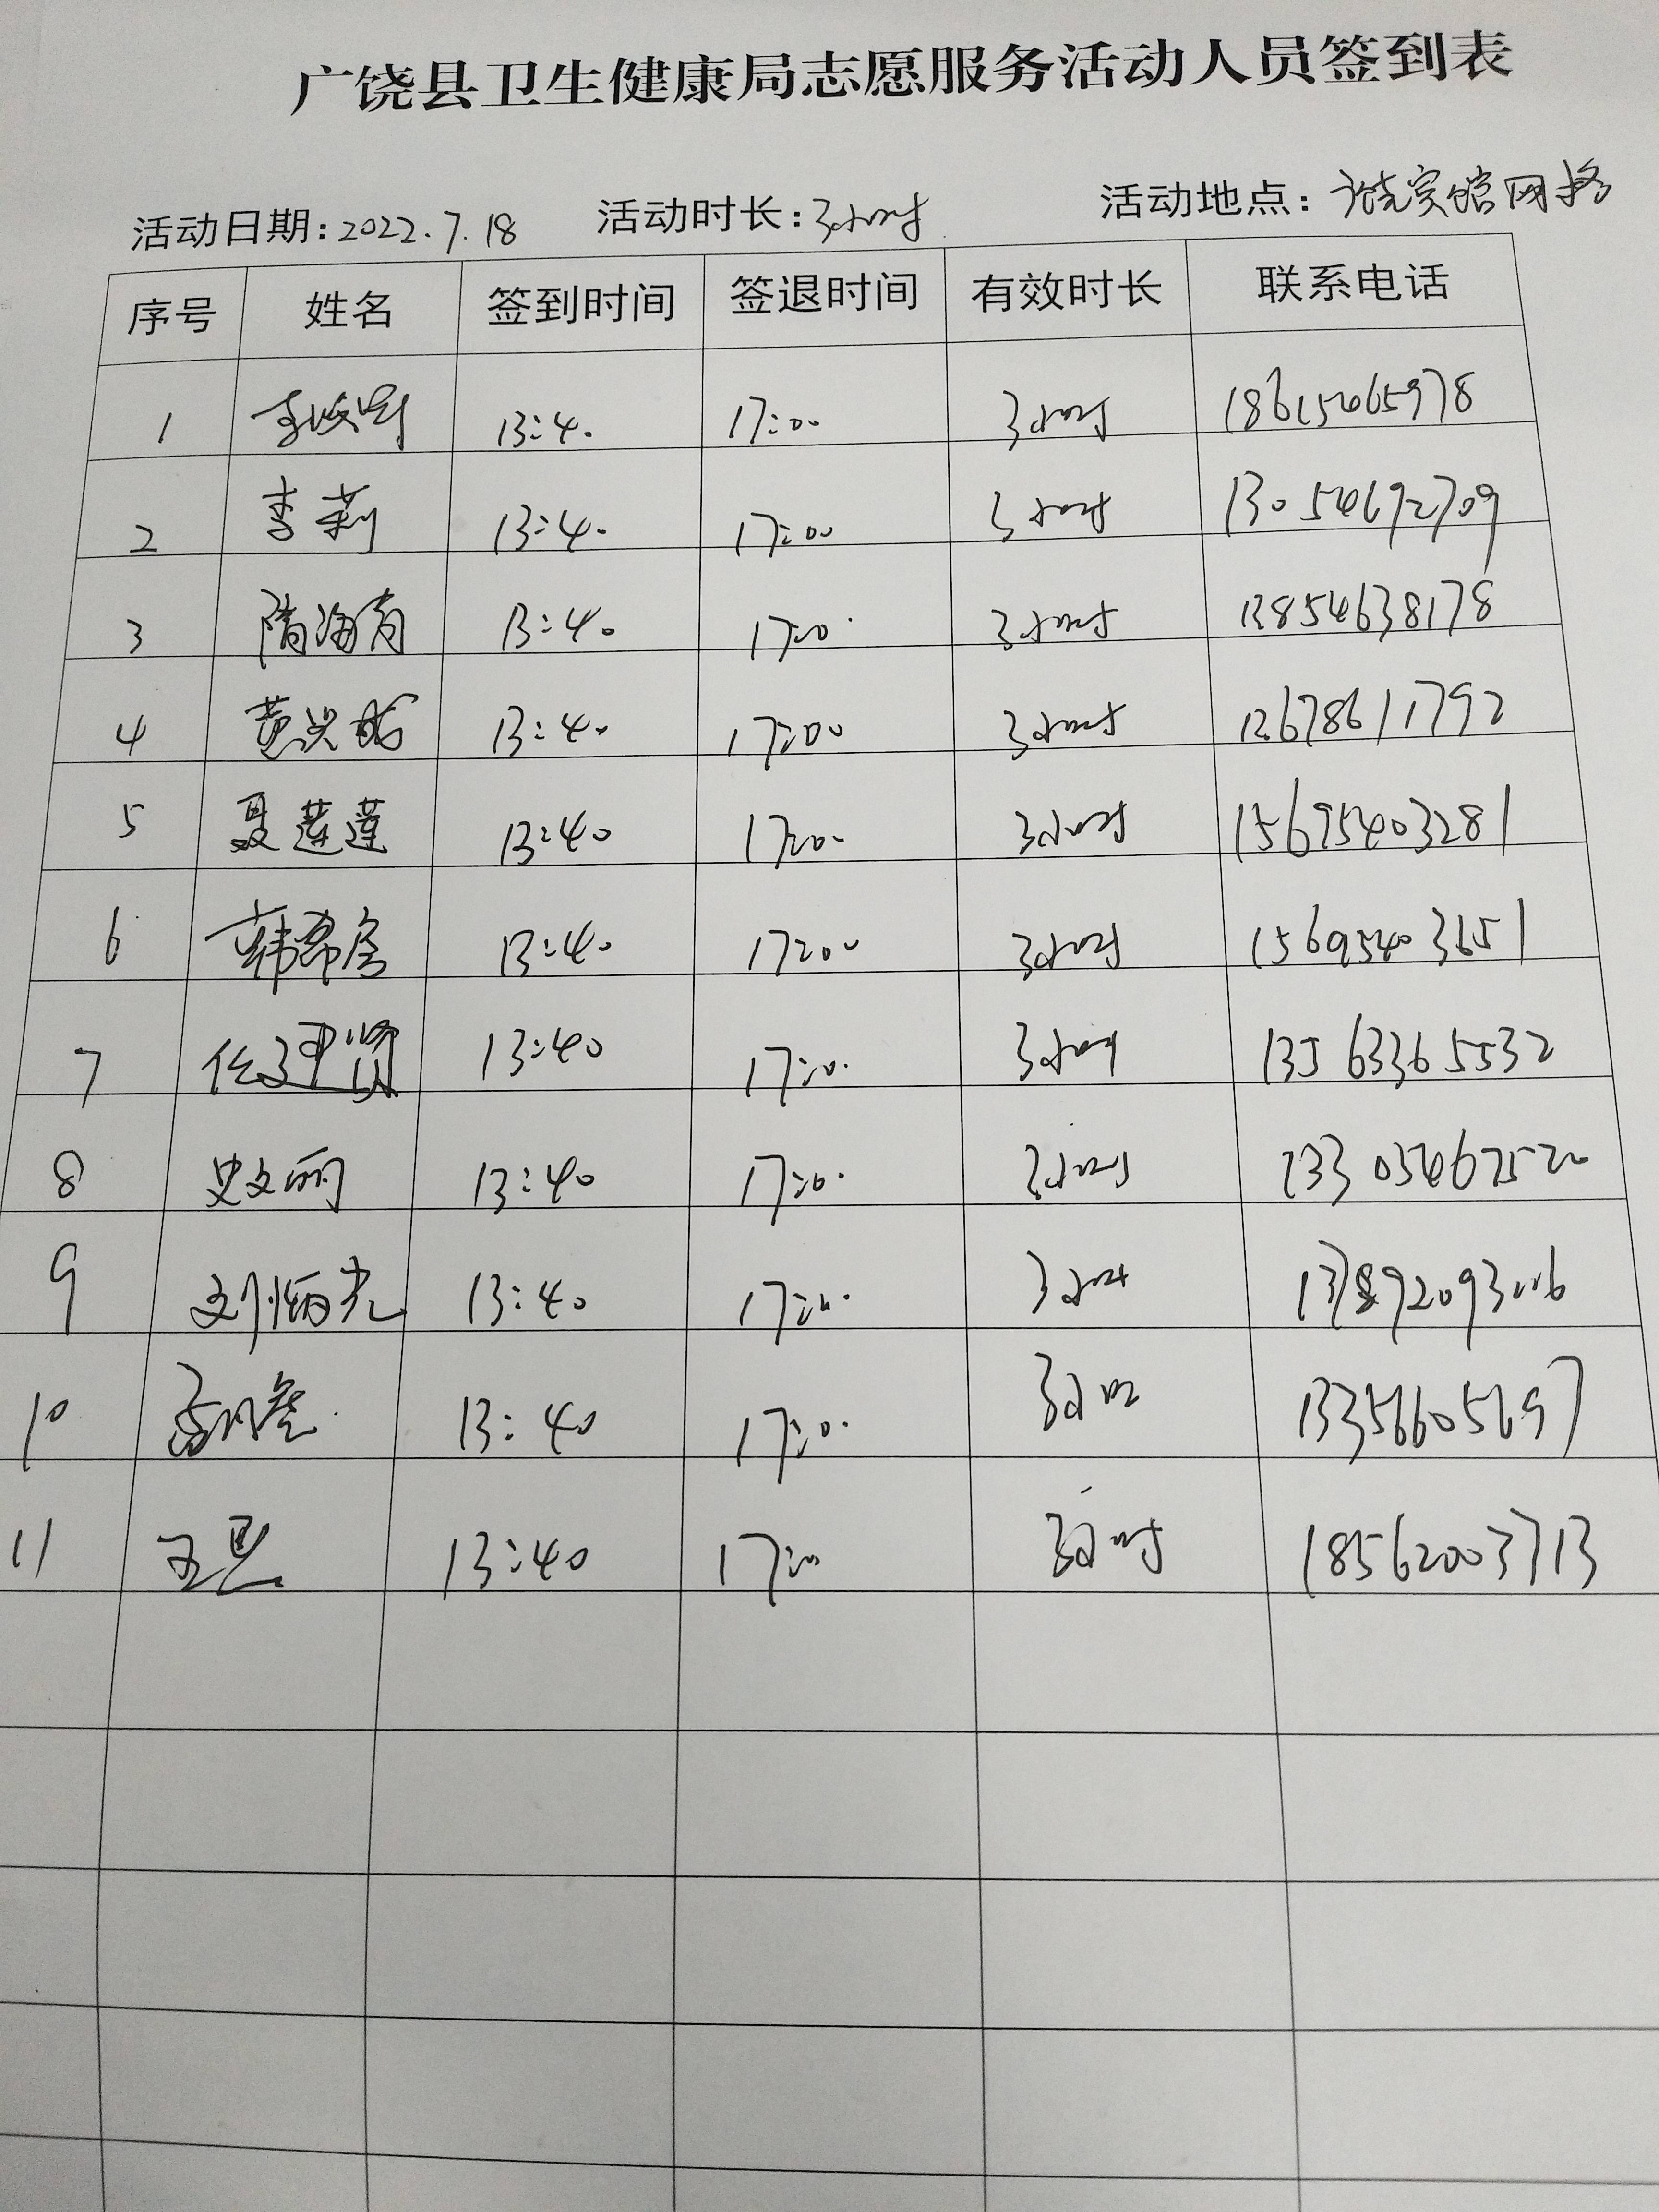 广饶县卫生健康局志愿服务活动人员签到表
活动日期:2022.7.18 活动时长:3小时 活动地点:饶宾馆网格
序号 姓名 签到时间 签退时间 有效时长 联系电话
1 13:40 17:00 3小时 18615465978
2 李莉 13:40 17:00 3小时 13054692709
3 隋海青 13:40 17:00 3小时 13854638178
4 黄兴 13:40 17:00 3小时 12678611792
5 聂莲莲 13:40 17:00 3小时 15695403281
6 韩希 13:40 17:00 3小时 15695403651
7 任 贤 13:40 17:00 3小时 13563365532
8 史文丽 13:40 17:00 3小时
9 刘炳光 13:40 17:00 3小时
10 13:40 17:00 3小时 13356605697
11 13:40 17:00 3小时 18562003713